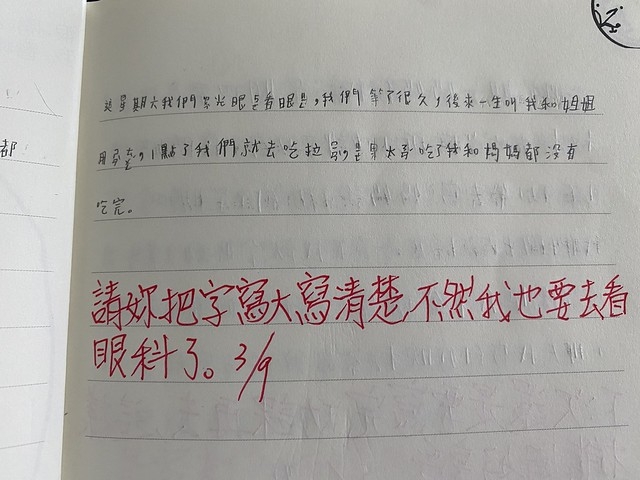 這星期六我們眼看眼,我們等了很久,後來一生叫我和姐姐
,1點了我們就去吃拉,太吃了我和媽媽都沒有
吃完。
請妳把字寫大寫清楚,不然我也要去看
眼科了。3/9
都